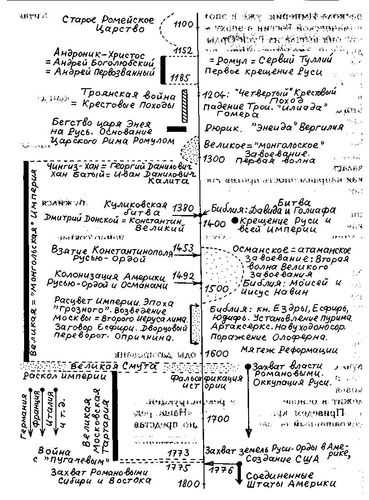 Старое Ромейское
Царство
1100
1152
Андроник-Христос
= Андрей Боголюбский
= Андрей Первозванный
1185
= Ромул = Сервий Туллий
Первое крещение Руси
Троянская война
= Крестовые Походы
1204: "Четвертый" Крестовый
Поход
падение Трои. "Илиада"
Гомера
Бегство царя Энея
на Русь. Основание
Царского Рима Ромулом
Рюрик. "Энеида" Вергилия
Великое="монгольское"
1300
Завоевание.
Первая волна
Чингиз-Хан = Георгий Данилович
Хан Батый = Иван Данилович
Калита
Великая = "Монгольская" Империя
Куликовская
битва
1380
Дмитрий Донской = Константин
Великий
Битва
Библия: Давида и Голиафа
1400
Крещение Руси и
всей Империи
Взятие Константинополя
Русью-Ордой
1453
Османское = атаманское
Завоевание: Вторая
волна Великого
Завоевания
Колонизация Америки
Русью-Ордой и Османами
1492
1500
Библия: Моисей и
Иисус Навин
Расцвет Империи. Эпоха
"Грозного". Возведение
Москвы = Второго Иерусалима.
Заговор Есфири. Дворцовый
переворот. Опричнина.
Библия: кн. Ездры, Есфирь,
Юдифь. Установление Пурима.
Артаксеркс. Навуходоносор.
Поражение Олоферна.
1600
Мятеж Реформации
Великая Смута
Раскол империи
Фальсификация
истории
Захват власти
Романовыми.
Оккупация Руси.
Германия
Франция
Италия
и т.д.
Великая
Московская
Тартария
1700
Война
с "Пугачевым"
1773
1775
Захват земель Руси-Орды в Аме-
рике, Создание США
1776
Захват Романовыми
Сибири и Востока
1800
Соединенные
Штаты Америки